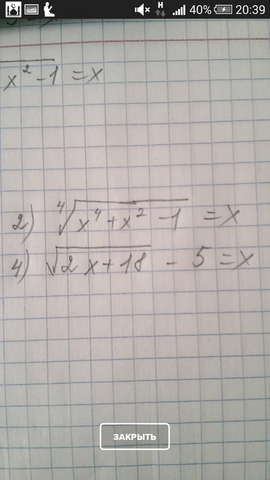 H 40% 20:39
x² - 1 = x
2) ∜(x⁴ + x² - 1) = x
4) √(2x + 18) - 5 = x
ЗАКРЫТЬ